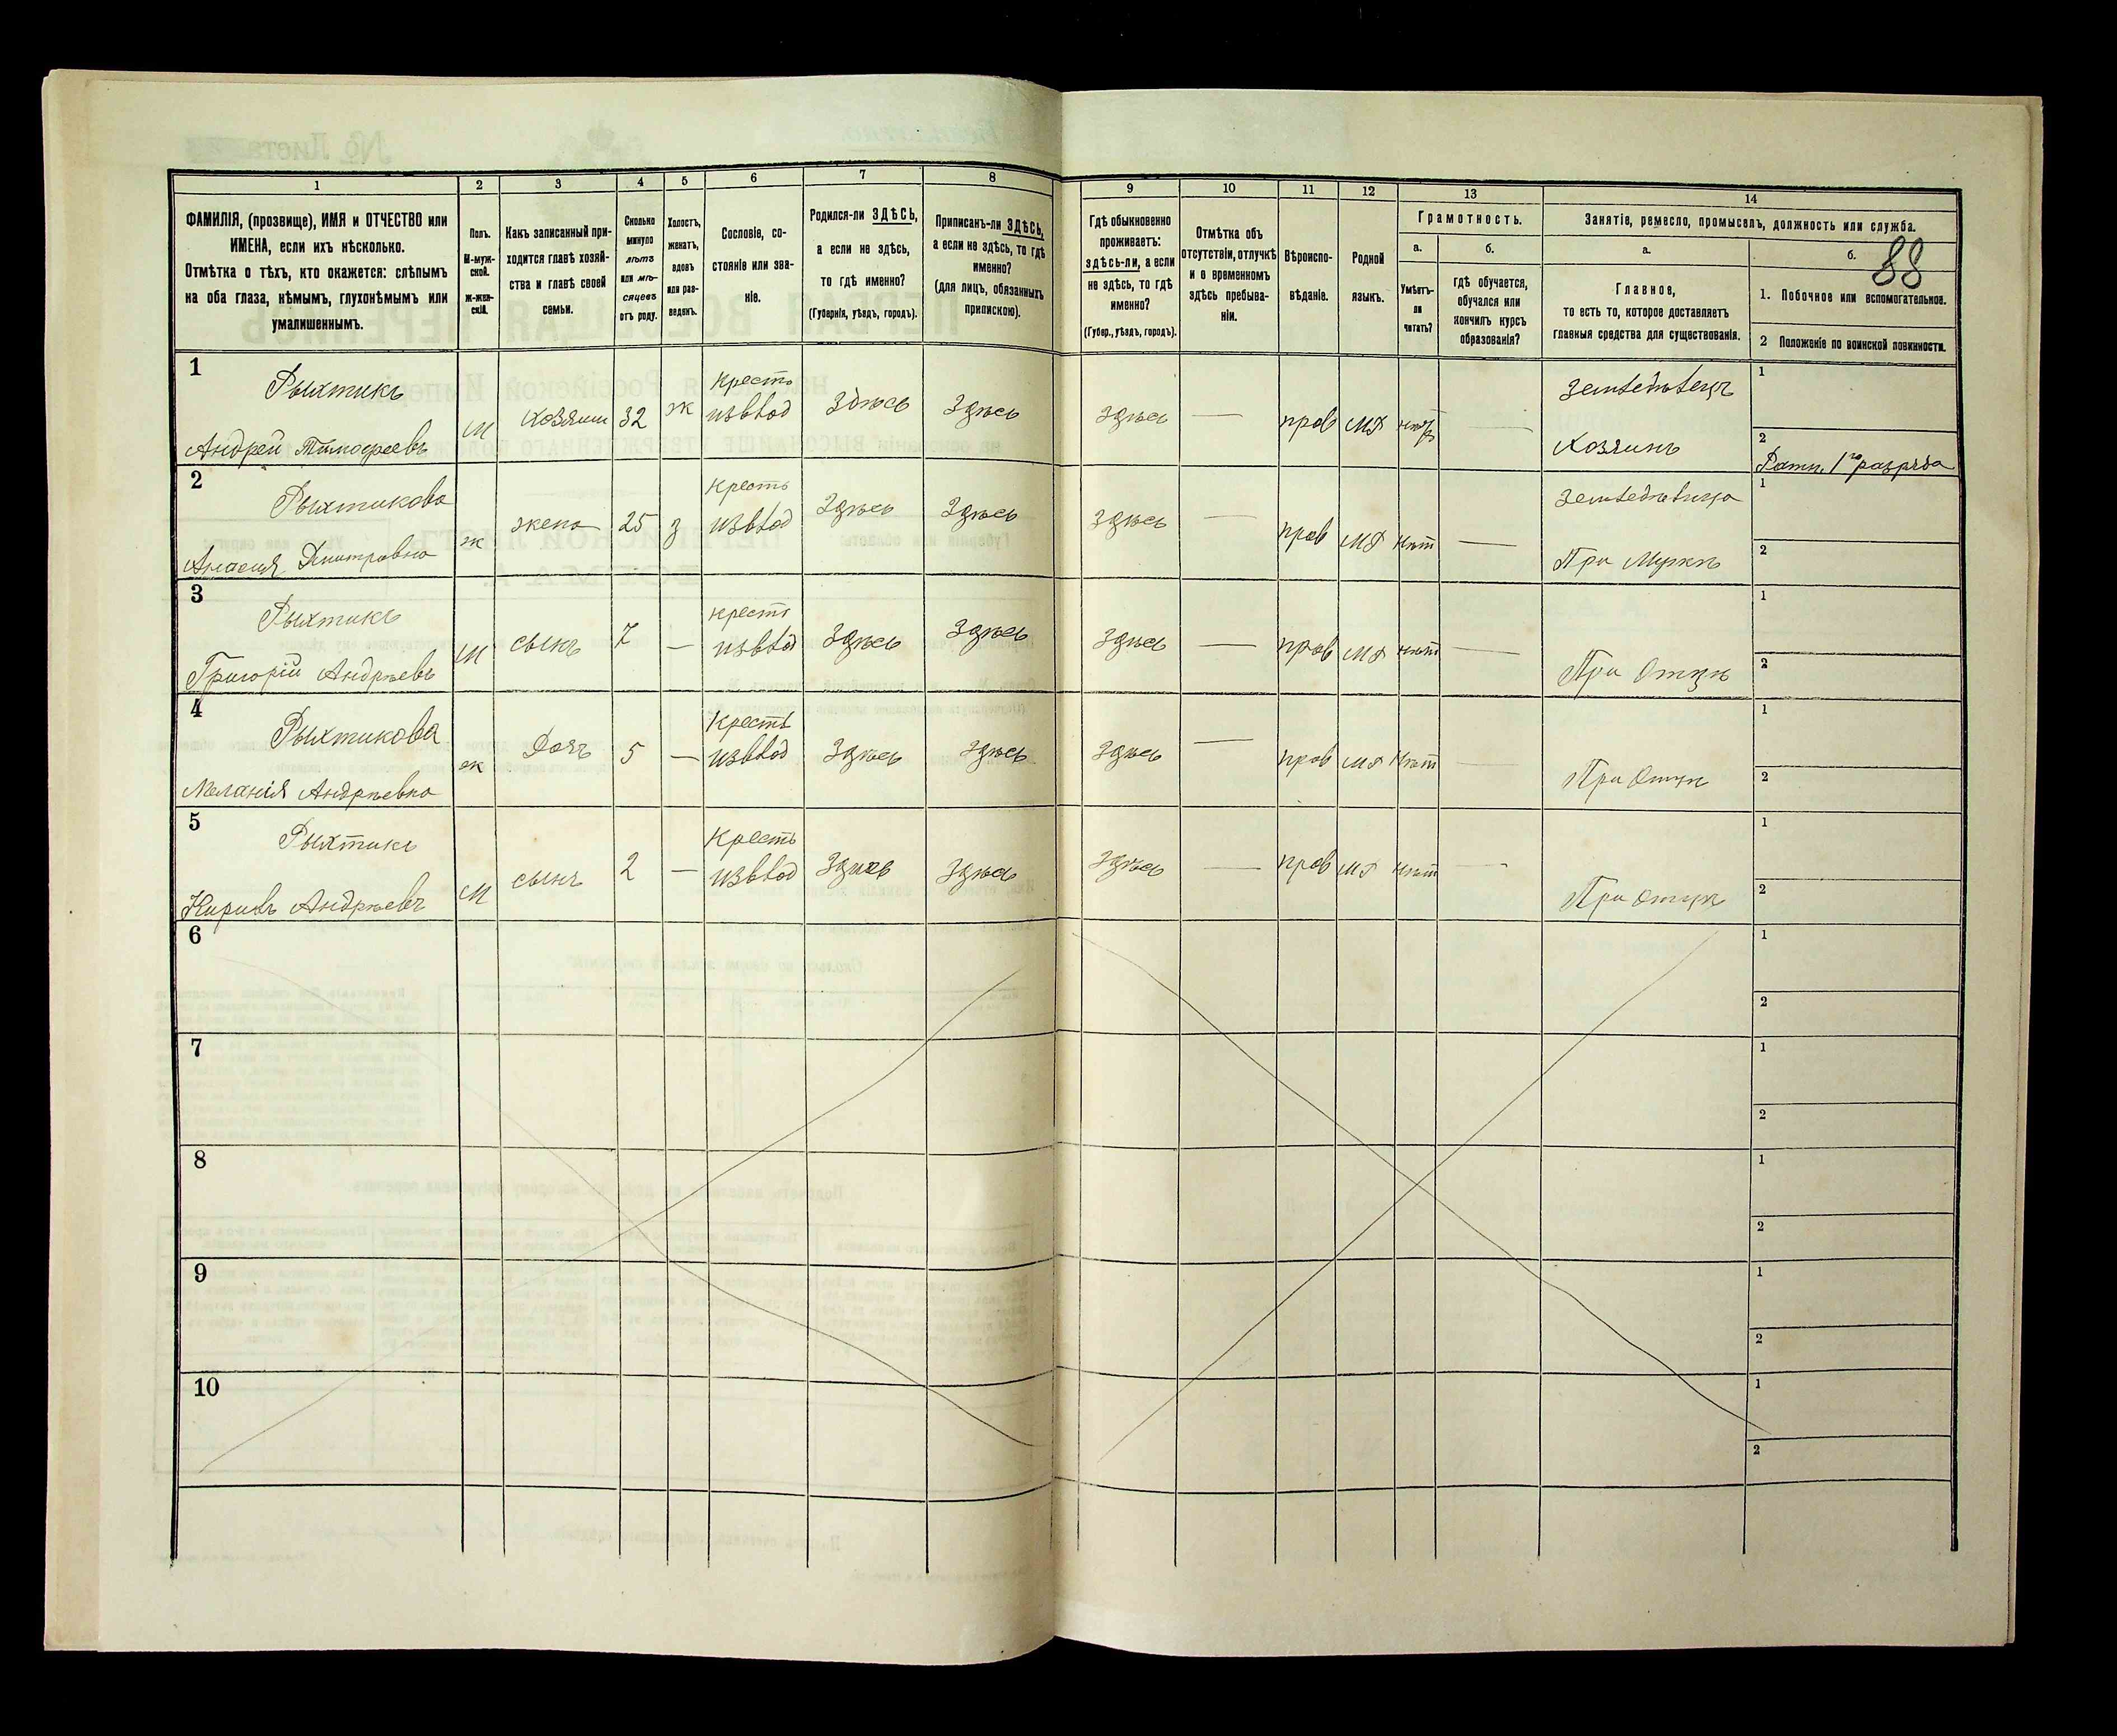 88
1 2 3 4 5 6 7 8 9 10 11 12 13 14
ФАМИЛІЯ, (прозвище), ИМЯ и ОТЧЕСТВО или
ИМЕНА, если ихъ нѣсколько.
Отмѣтка о тѣхъ, кто окажется: слѣпымъ
на оба глаза, нѣмымъ, глухонѣмымъ или
умалишеннымъ.
Полъ.
М-муж-
ской.
Ж-жен-
скій.
Какъ записанный при-
ходится главѣ хозяй-
ства и главѣ своей
семьи.
Сколько
минуло
лѣтъ
или мѣ-
сяцевъ
отъ роду.
Холостъ,
женатъ,
вдовъ
или раз-
веденъ.
Сословіе, со-
стояніе или зва-
ніе.
Родился-ли ЗДѢСЬ,
а если не здѣсь,
то гдѣ именно?
(Губернія, уѣздъ, городъ).
Приписанъ-ли ЗДѢСЬ,
а если не здѣсь, то гдѣ
именно?
(для лицъ, обязанныхъ
припискою).
Гдѣ обыкновенно
проживаетъ:
здѣсь-ли, а если
не здѣсь, то гдѣ
именно?
(Губер., уѣздъ, городъ).
Отмѣтка объ
отсутствіи, отлучкѣ
и о временномъ
здѣсь пребыва-
ніи.
Вѣроиспо-
вѣданіе.
Родной
языкъ.
Грамотность.
а.
Умѣетъ-
ли
читать?
б.
гдѣ обучается,
обучался или
кончилъ курсъ
образованія?
Занятіе, ремесло, промыселъ, должность или служба.
а.
Главное,
то есть то, которое доставляетъ
главныя средства для существованія.
б.
1. Побочное или вспомогательное.
2 Положеніе по воинской повинности.
1
Рыхтикъ
Андрей Тимофеевъ
м
хозяин
32
ж
крестъ
изввод
здѣсь
здѣсь
здѣсь
—
прав
мр
нѣт
—
землѣдѣлецъ
хозяинъ
1
2
Ратн. 1го разряда
2
Рыхтикова
Дмитровна
ж
жена
25
з
крестъ
изввод
здѣсь
здѣсь
здѣсь
—
прав
мр
нѣт
—
При Мужѣ
1
2
3
Рыхтикъ
Григорій Андрѣевъ
м
сынъ
7
—
крестъ
изввод
здѣсь
здѣсь
здѣсь
—
прав
мр
нѣт
—
При Отцѣ
1
2
4
Рыхтикова
Меланія Андрѣевна
ж
дочь
5
—
крестъ
изввод
здѣсь
здѣсь
здѣсь
—
прав
мр
нѣт
—
При Отцѣ
1
2
5
Рыхтикъ
Андрѣевъ
м
сынъ
2
—
крестъ
изввод
здѣсь
здѣсь
здѣсь
—
прав
мр
нѣт
—
При Отцѣ
1
2
6
1
2
7
1
2
8
1
2
9
1
2
10
1
2